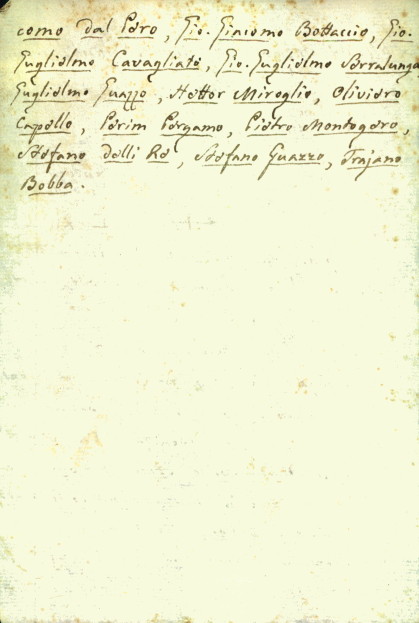 como dal Pero, Gio. Giacomo Bottaccio, Gio.
Guglielmo Cavagliate, Gio. Guglielmo Serralunga
Guglielmo Guazzo, Hettor Miroglio, Oliviero
Capello, Perim Pergamo, Pietro Montogero,
Stefano delli Re, Stefano Guazzo, Trajano
Bobba.